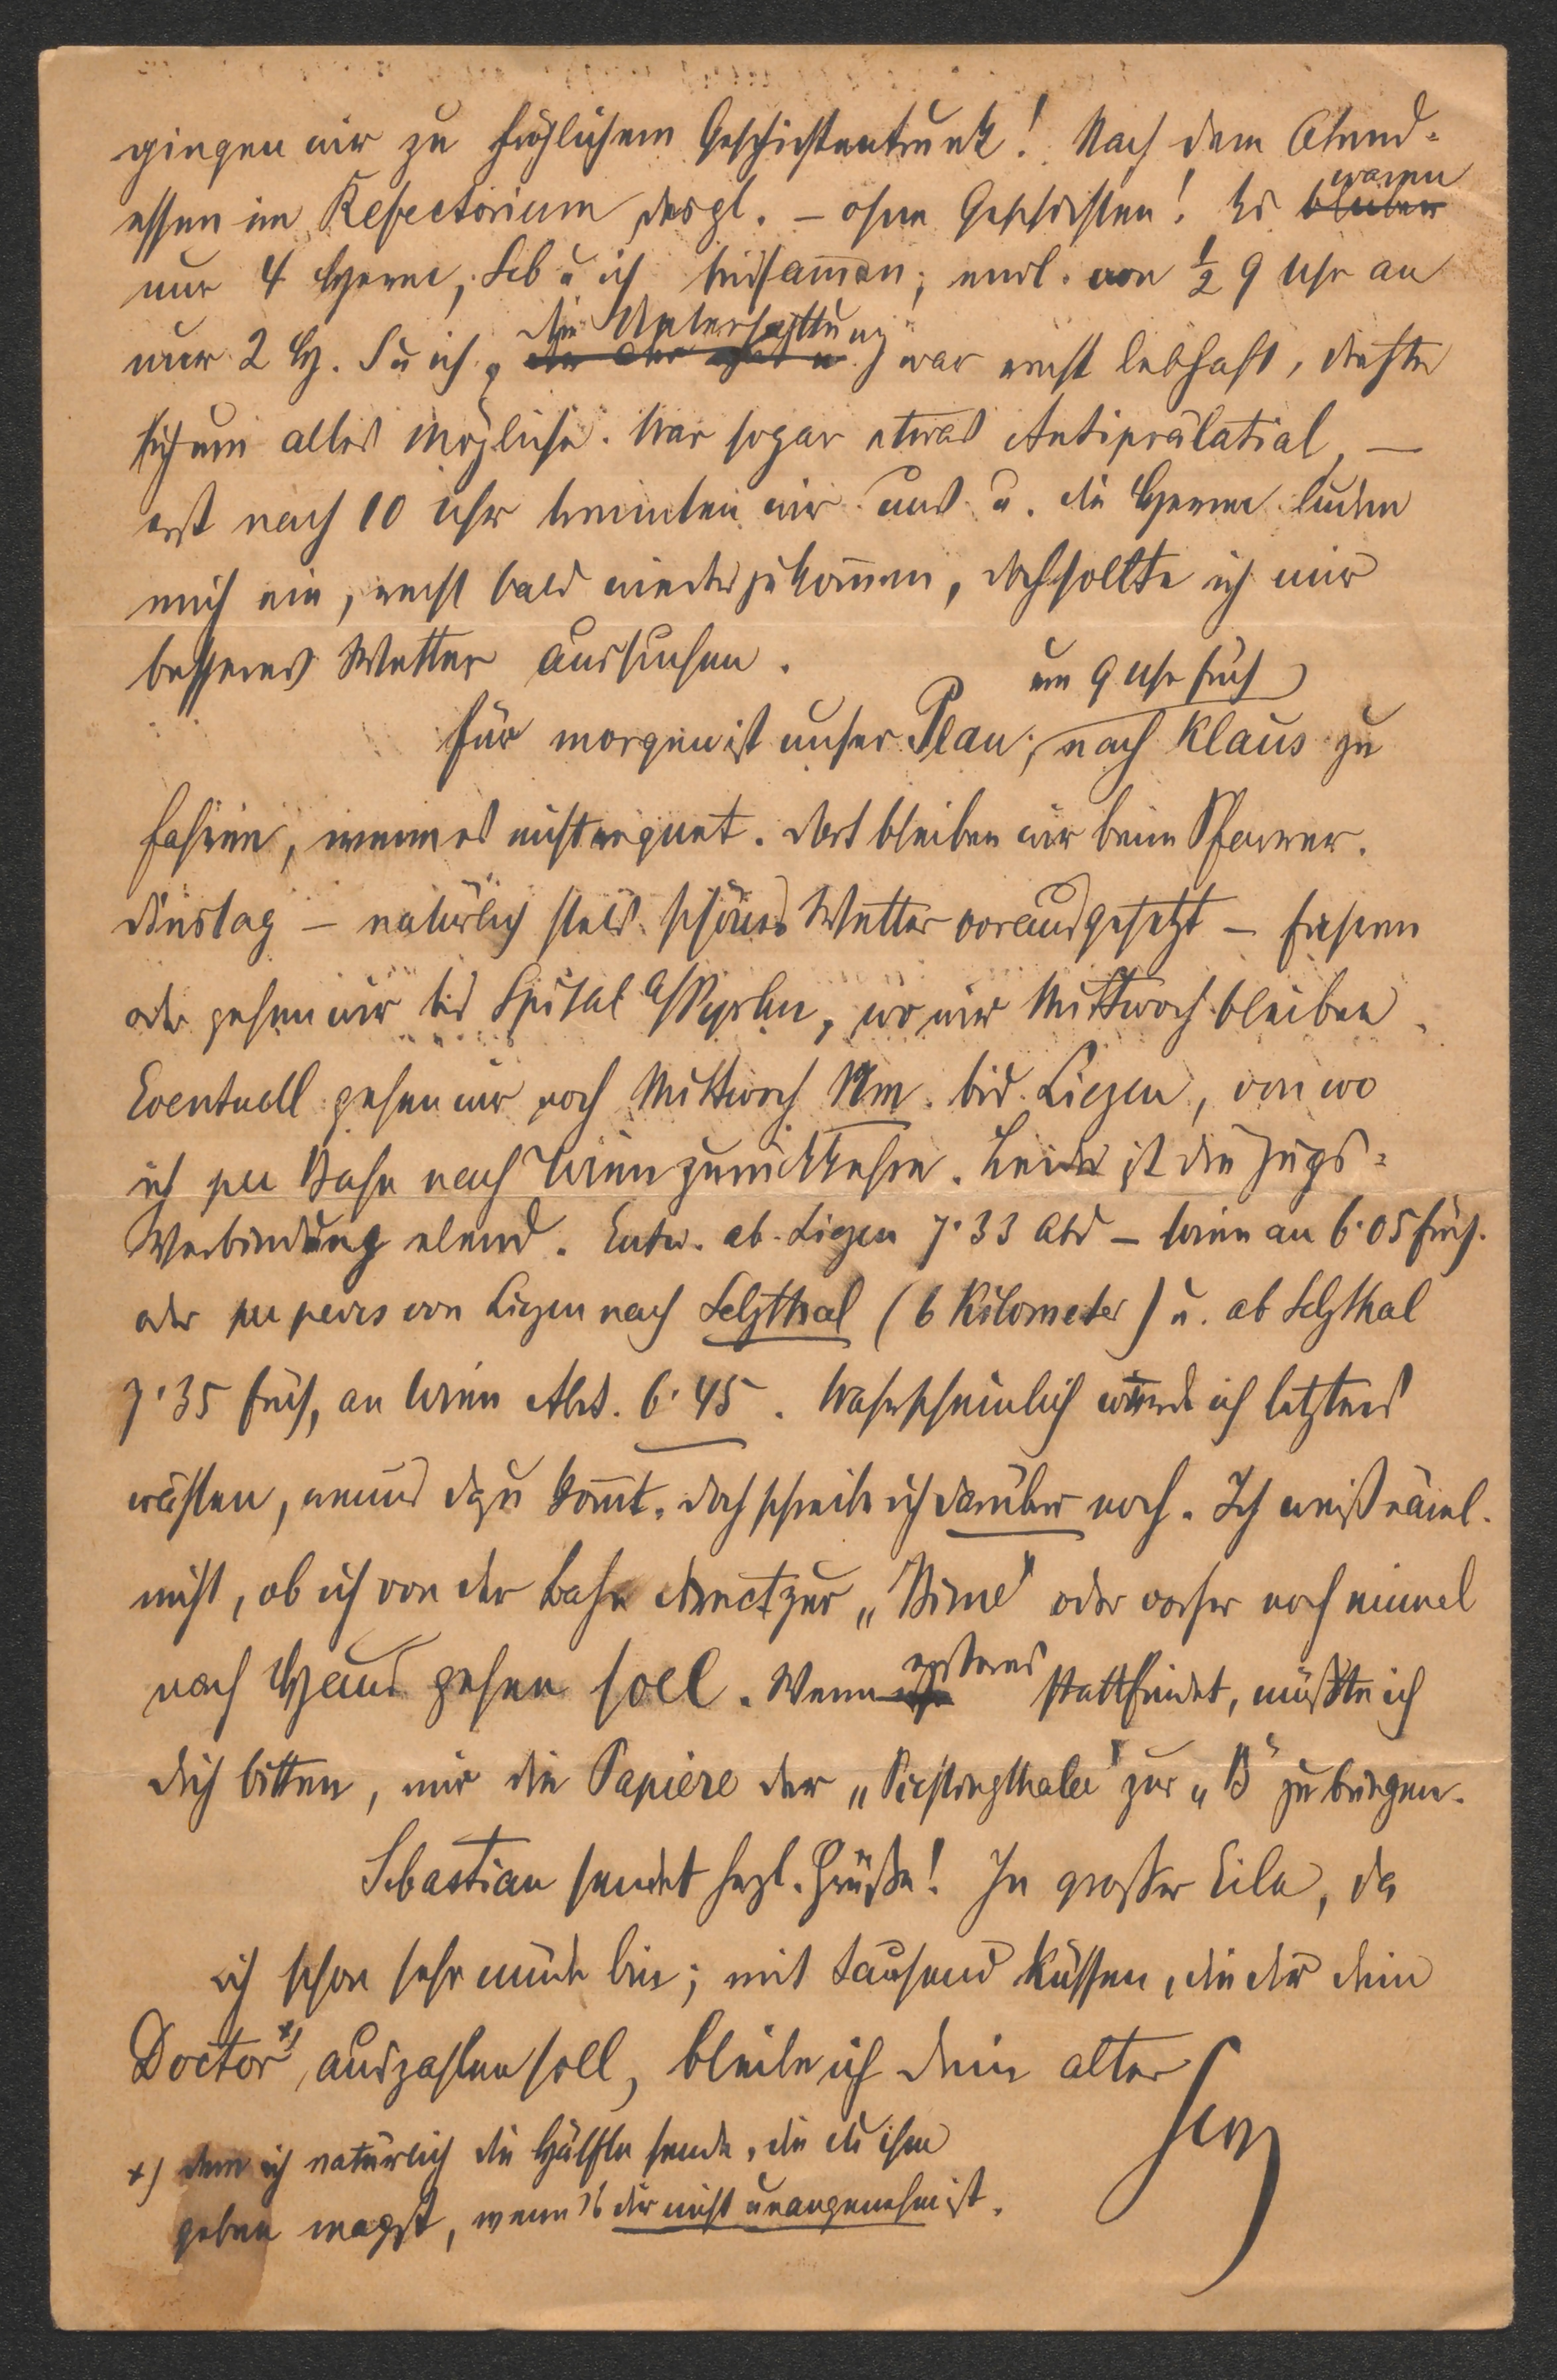 gingen wir zu fröhlichem Geschichtentrunk! Nach dem Abend-
essen im Refectorium desgl. – ohne Geschichten! Es waren
nur 4 Herrn, Seb u ich beisamen; endl. von ½ 9 Uhr an
nur 2 H. S u ich, die Unterhaltung war recht lebhaft, drehte
sich um alles mögliche. War sogar etwas Antiprälatial, –
erst nach 10 Uhr trennten wir uns u. die Herrn luden
mich ein, recht bald wiederzukomen, doch sollte ich mir
besseres Wetter aussuchen.
um 9 Uhr früh
Für morgen ist unser Plan, nach Klaus zu
fahren, wenn es nicht regnet. Dort bleiben wir beim Pfarrer.
Dinstag – natürlich stets schönes Wetter vorausgesetzt – fahren
oder gehen wir bis Spital a/Pyrhn, wo wir Mittwoch bleiben.
Eventuell gehen wir noch Mittwoch Nm. bis Liezen, von wo
ich per Bahn nach Wien zurückkehre. Leider ist die Zugs-
Verbindung elend. Entw. ab Liezen 7·33 Abd – Wien an 6·05 früh.
oder per pedes von Liezen nach Selzthal (6 Kilometer) u. ab Selzthal
7·35 früh, an Wien Abds. 6·45. Wahrscheinlich würde ich letzteres
wählen, wenns dazu komt. Doch schreibe ich darüber noch. Ich weiß näml.
nicht, ob ich von der Bahn direct zur „Birne" oder vorher noch einmal
nach Haus gehen soll. Wenn ersteres stattfindet, müßte ich
dich bitten, mir die Papiere der „Piestingthaler" zur „B" zu bringen.
Sebastian sendet hrzl. Grüße! In großer Eile, da
ich schon sehr müde bin; mit tausend Küssen, die dir dein
Doctor x) auszahlen soll, bleibe ich dein alter
x) dem ich natürlich die Hälfte sende, die du ihm
geben magst, wenn's dir nicht unangenehm ist.